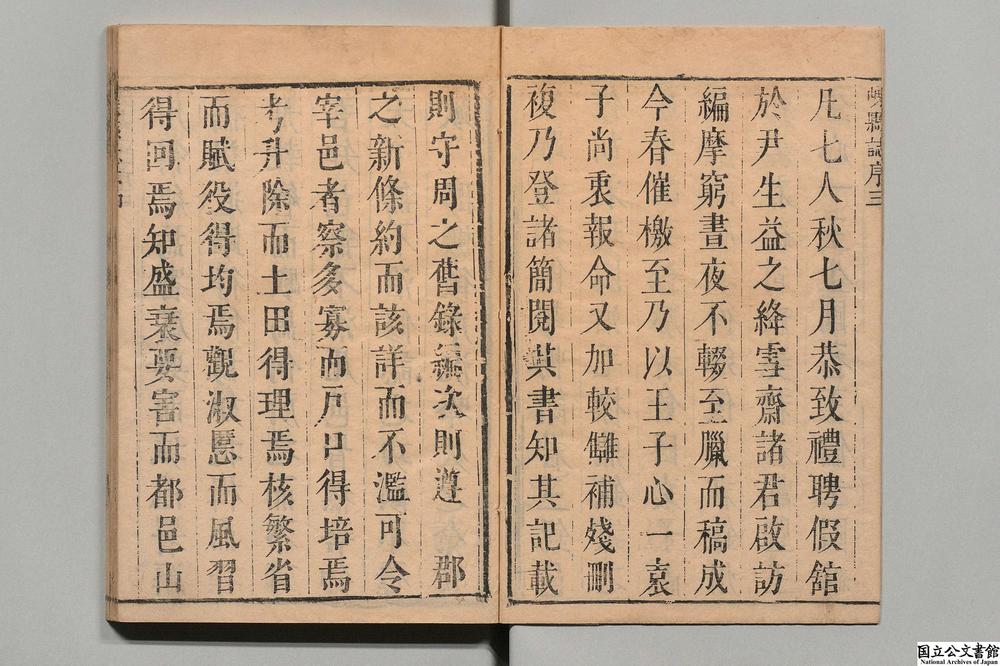 縣誌序三
凡七人秋七月恭致禮聘假舘
於尹生益之絳雪齋諸君啟訪
編摩窮晝夜不輟至臘而稿成
今春催檄至乃以王子心一袁
子尚衷報命又加較讎補殘刪
複乃登諸簡閱其書知其記載
則守周之舊錄編次則遵 郡
之新條約而該詳而不濫可令
宰邑者察多寡而戸口得培焉
考升除而土田得理焉核繁省
而賦役得均焉觀淑慝而風習
得回焉知盛衰要害而都邑山
国立公文書館
National Archives of Japan